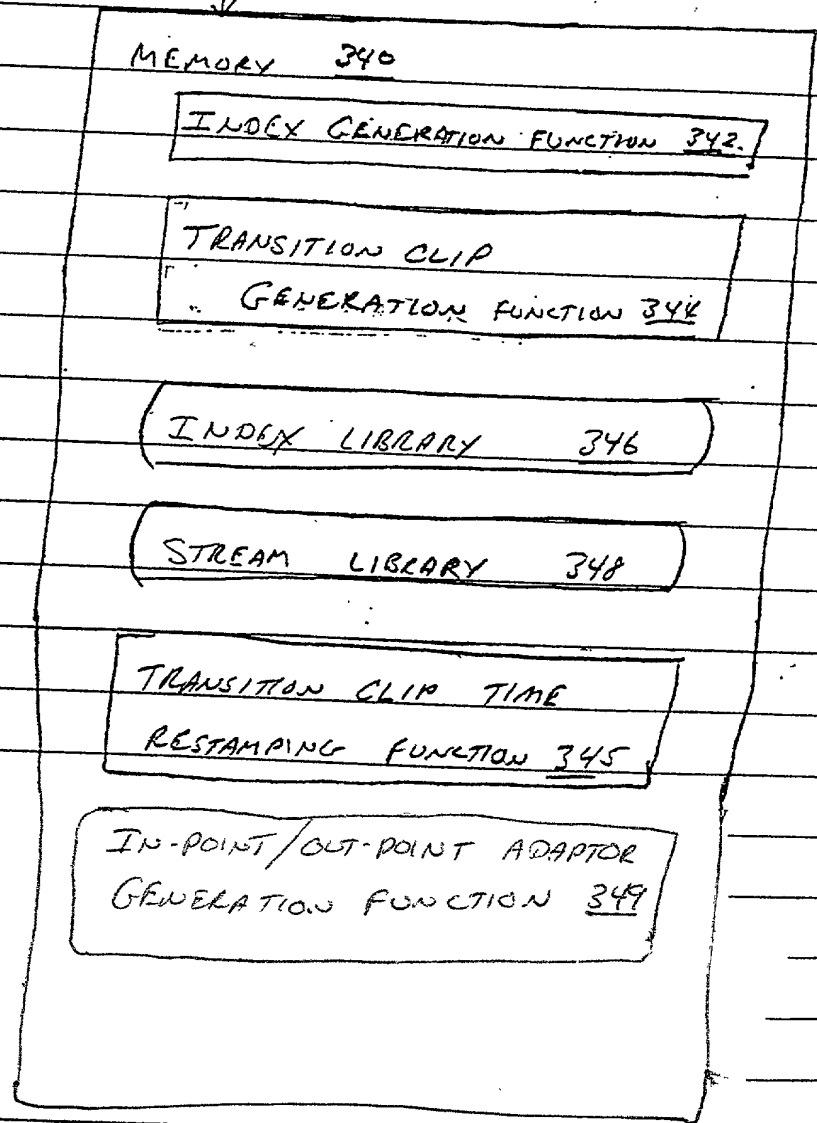 MEMORY 340
INDEX GENERATION FUNCTION 342.
TRANSITION CLIP
GENERATION FUNCTION 344
INDEX LIBRARY 346
STREAM LIBRARY 348
TRANSITION CLIP TIME
RESTAMPING FUNCTION 345
IN-POINT/OUT-POINT ADAPTOR
GENERATION FUNCTION 349